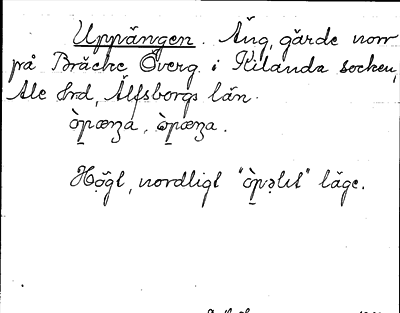 Uppängen. Äng, gärde norr
på Bräcke Överg. i Kilanda socken,
Ale hrd, Älfsborgs län.
Högl, nordligt läge.